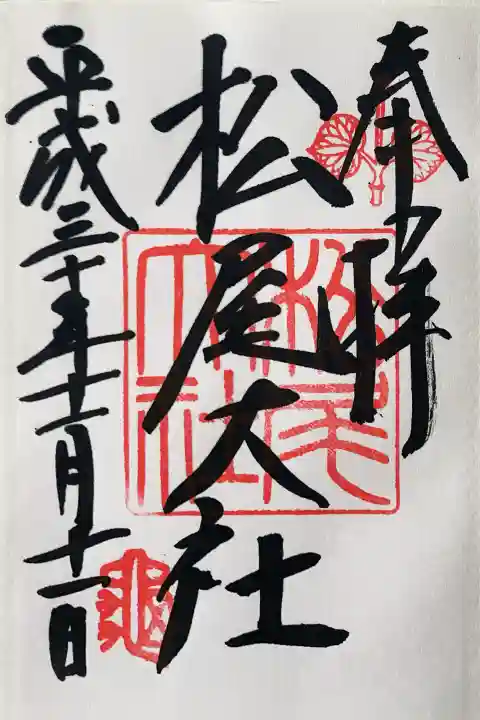 奉拝
松尾大社
平成三十年十二月十一日
松尾大社